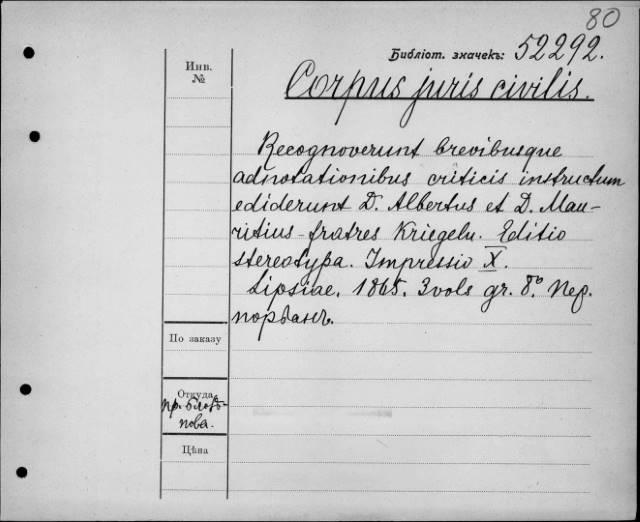 80
Библіот. значекъ: 52292.
Инв.
№
Corpus juris civilis.
Recognoverunt brevibusque
adnotationibus criticis instructum
ediderunt D. Albertus et D. Mau-
ritius fratres Kriegeln. Editio
stereotypa. Impressio X.
Lipsiae. 1865. 3 vols gr. 8° Пер.
порван.
По заказу
Откуда
пр.
пова.
Цѣна